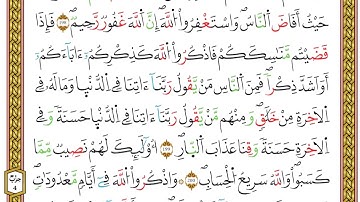 حَيْثُ أَفَاضَ اَ۬لنَّاسُ وَاسْتَغْفِرُواْ اُ۬للَّهَ إِنَّ اَ۬للَّهَ غَفُورٞ رَّحِيمٞ 198 فَإِذَا
قَضَيْتُم مَّنَٰسِكَكُمْ فَاذْكُرُواْ اُ۬للَّهَ كَذِكْرِكُمْ ءَابَآءَكُمْ
أَوَ اَشَدَّ ذِكْراٗ فَمِنَ اَ۬لنَّاسِ مَنْ يَّقُولُ رَبَّنَآ ءَاتِنَا فِے اِ۬لدُّنْيَا وَمَا لَهُۥ فِے
اِ۬لَاخِرَةِ مِنْ خَلَٰقٖ وَمِنْهُم مَّنْ يَّقُولُ رَبَّنَآ ءَاتِنَا فِے اِ۬لدُّنْيَا حَسَنَةٗ وَفِے
اِ۬لَاخِرَةِ حَسَنَةٗ وَقِنَا عَذَابَ اَ۬لنَّارِ 199 أُوْلَٰٓئِكَ لَهُمْ نَصِيبٞ مِّمَّا
كَسَبُواْ وَاللَّهُ سَرِيعُ اُ۬لْحِسَابِ 200 وَاذْكُرُواْ اُ۬للَّهَ فِےٓ أَيَّامٖ مَّعْدُودَٰتٖ
حزب
4